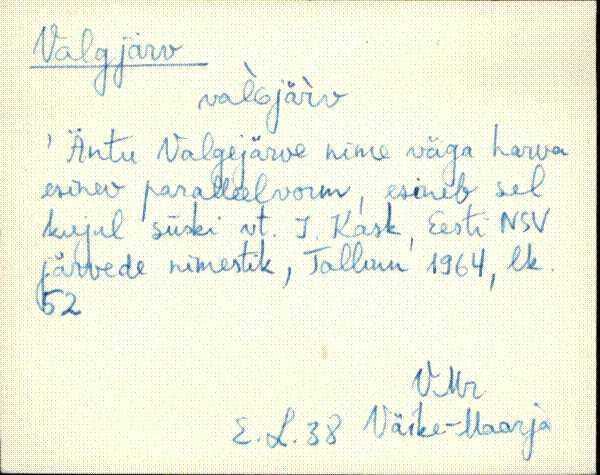 Valgjärv
val̀Gjär̀v
' Äntu Valgejärve nime väga harva
esinev paralleelvorm, esineb sel
kujul siiski vt. J. Kask, Eesti NSV
järvede nimestik, Tallinn 1964, lk.
52
VMr
E.L.38 Väike-Maarja